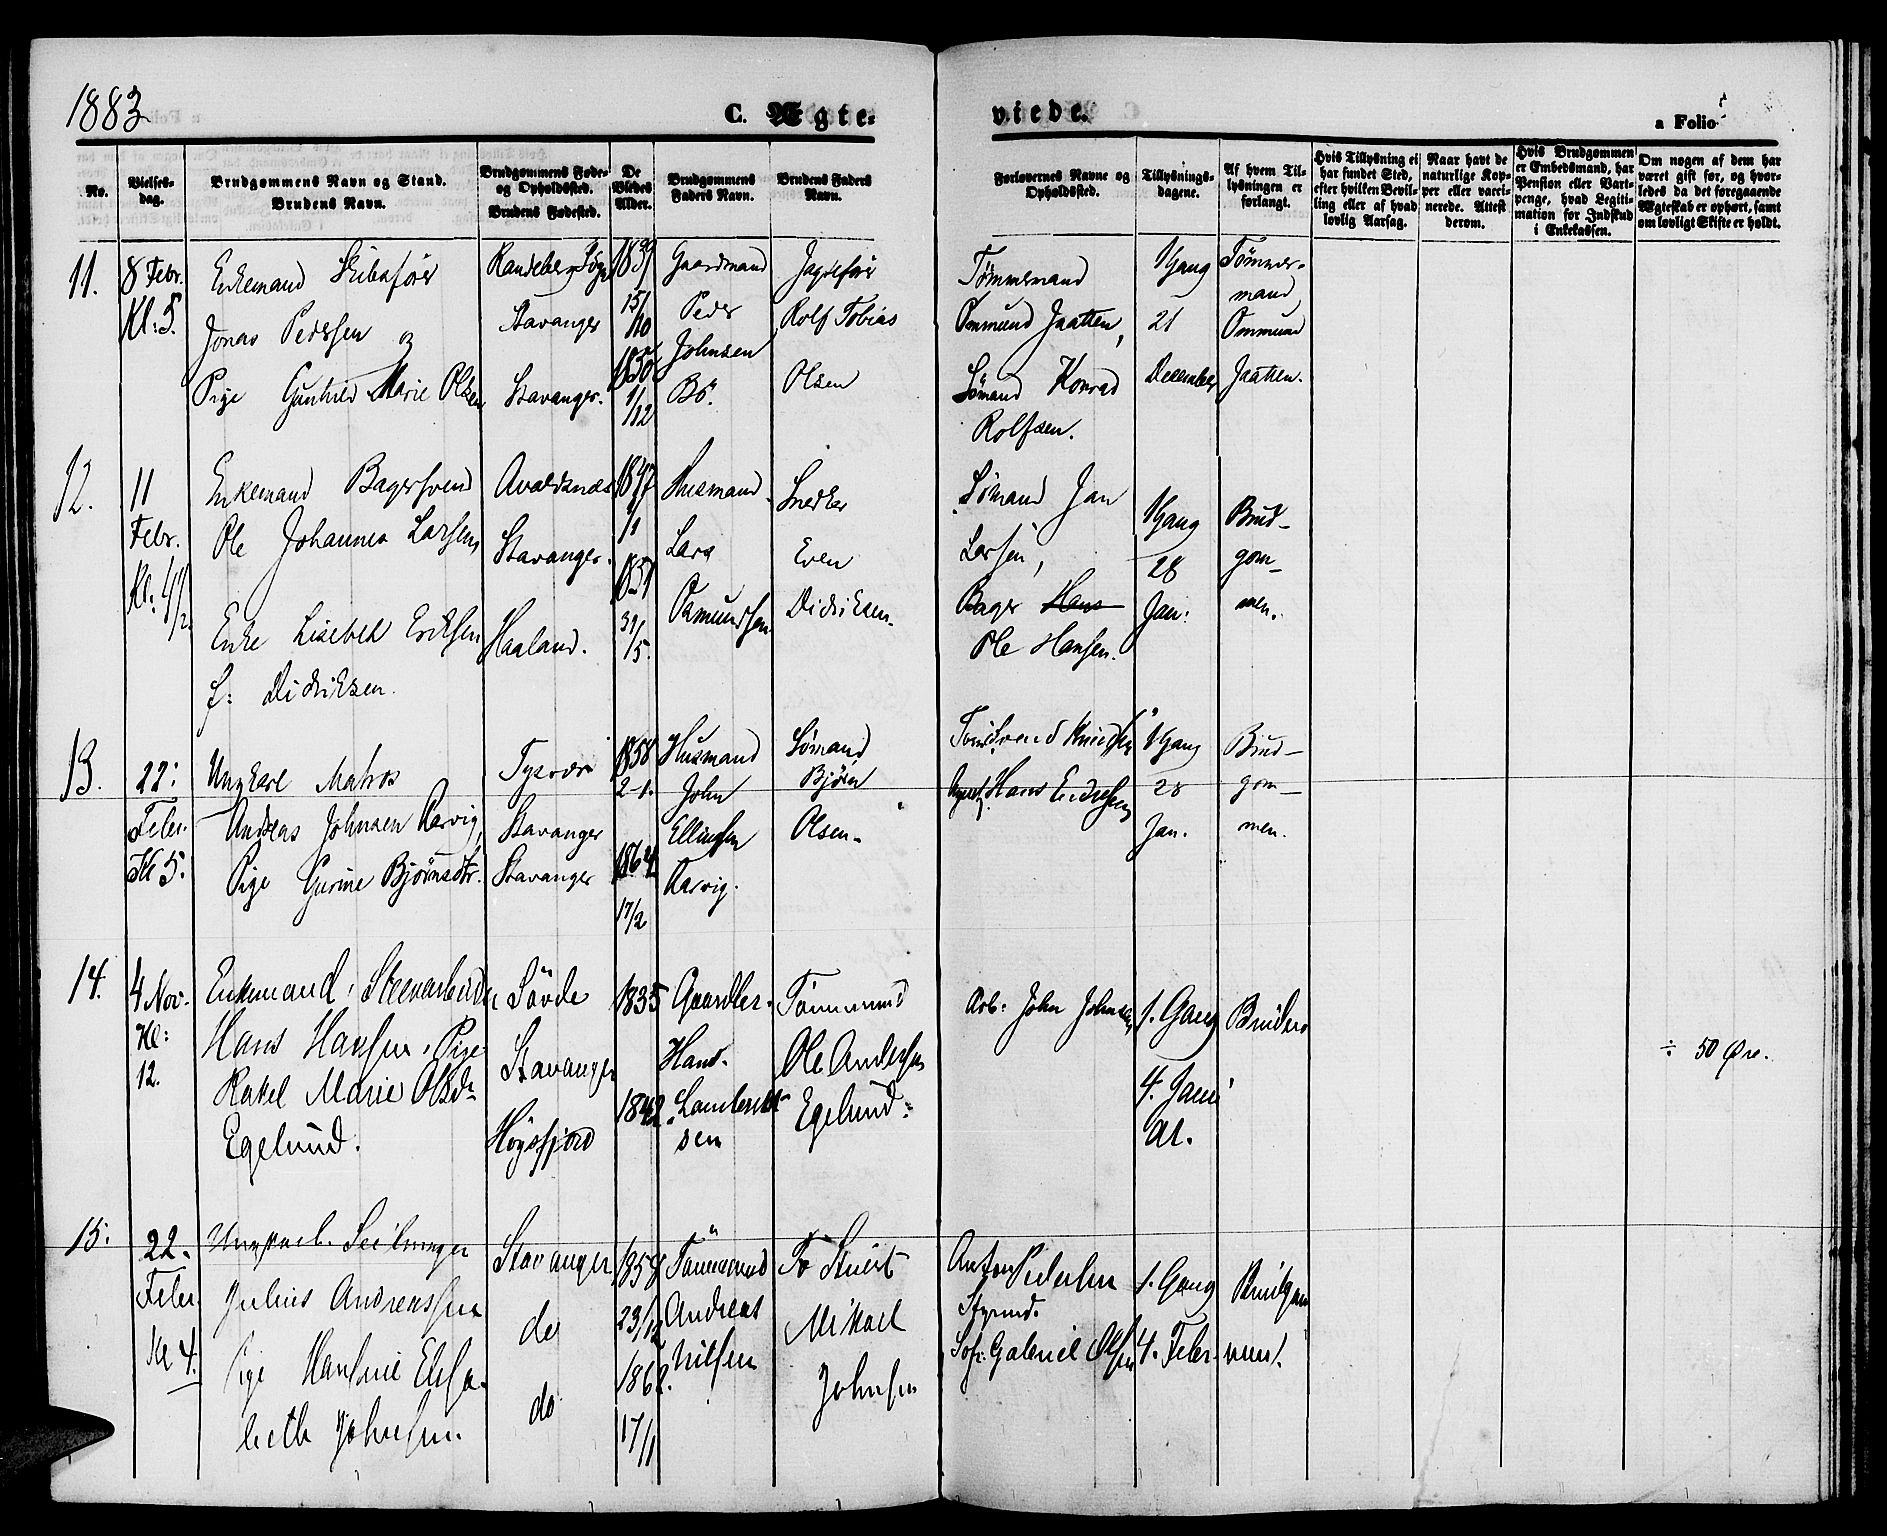 1883
C. Ægte-
viede.
a Folio
No.
Vielses-
dag.
Brudgommens Navn og Stand.
Brudens Navn.
Brudgommens Føde-
og Opholdssted.
Brudens Fødested.
De
Viedes
Alder.
Brudgommens
Faders Navn.
Brudens Faders
Navn.
Forlovernes Navne og
Opholdssted.
Tillysnings-
dagene.
Af hvem Til-
lysningen er
forlangt.
Hvis Tillysning ei
har fundet Sted,
efter hvilken Bevil-
ling eller af hvad
lovlig Aarsag.
Naar havt de
naturlige Kop-
per eller vacci-
nerede. Attest
derom.
Hvis Brudgommen
er Embedsmand, har
Pension eller Vart-
penge, hvad Legiti-
mation for Indskud
i Enkekassen.
Om nogen af dem har
været gift før, og hvor-
ledes da det foregaaende
Ægteskab er ophørt, samt
om lovligt Skifte er holdt.
11.
8 Febr.
Kl: 5.
Enkemand Skibsfører
Jonas Pedersen og
Pige Gunhild Marie Olsen
Randeberg Sogn
Stavanger
Stavanger.
1839
15/10
1850
1/12
Gaardmand
Peder
Johnsen
Bø.
Jagtefører
Rolf Tobias
Olsen
Tømmermand
Ommund Jaatten,
Sømand Konrad
Rolfsen.
1 Gang
21
December
Tømmer-
mand
Ommund
Jaatten.
12.
11
Febr.
Kl: 4 1/2.
Enkemand Bagersvend
Ole Johannes Larsen,
Enke Lisebet Eriksen
f: Didriksen.
Avaldsnes
Stavanger.
Haaland.
1847
1851
31/5.
Husmand
Lars
Osmundsen
Snedker
Even
Didriksen.
Sømand Jan
Larsen,
Bager Hans
Ole Hansen.
1 Gang
28
Jan:
Brud-
gom-
men.
13.
22:
Febr.
Kl 5.
Ungkarl Matros
Andreas Johnsen Aarvig,
Pige Gurine Bjørnsdtr.
Tysvær
Stavanger
Stavanger
1858
2-1.
1864
17/2
Husmand
John
Ellingsen
Aarvig.
Sømand
Bjørn
Olsen.
Svend Knudsen
Hans Endresen
1 Gang
28
Jan.
Brud-
gom-
men.
14.
4 Nov.
Kl:
12.
Enkemand, Steenarbeider
Hans Hansen, Pige
Rakel Marie Olsdr
Egelund.
Søvde
Stavanger
Høgsfjord
1835
1842
Gaardbr.
Hans
Lambrekt-
sen
Tømmermd
Ole Andersen
Egelund.
Arb: John Johnsen
1. Gang
4. Janu
ar.
÷ 50 Øre.
15.
22.
Febr
Kl 4.
Ungkarl. Seilmager
Julius Andreassen
Pige Hansine Elisa-
beth Johnsen.
Stavanger
do
do
1858
23/12
1862.
17/1
Tømmermd
Andreas
Nilsen
Mikael
Johnsen
Anton Pedersen
Styrmd.
Gabriel Olsen
1. Gang
4. Febr.
Brudgom
men.